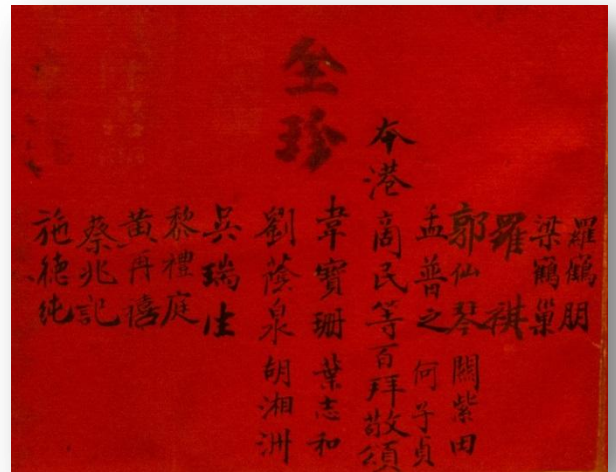 羅鶴朋
梁鶴巢
羅祺
郭仙琴 關紫田
孟普之 何子貞
本港商民等百拜敬頌
韋寶珊 葉志和
全珍
劉蔭泉 胡湘洲
吳瑞生
黎禮庭
黃冉禧
蔡兆記
施德純